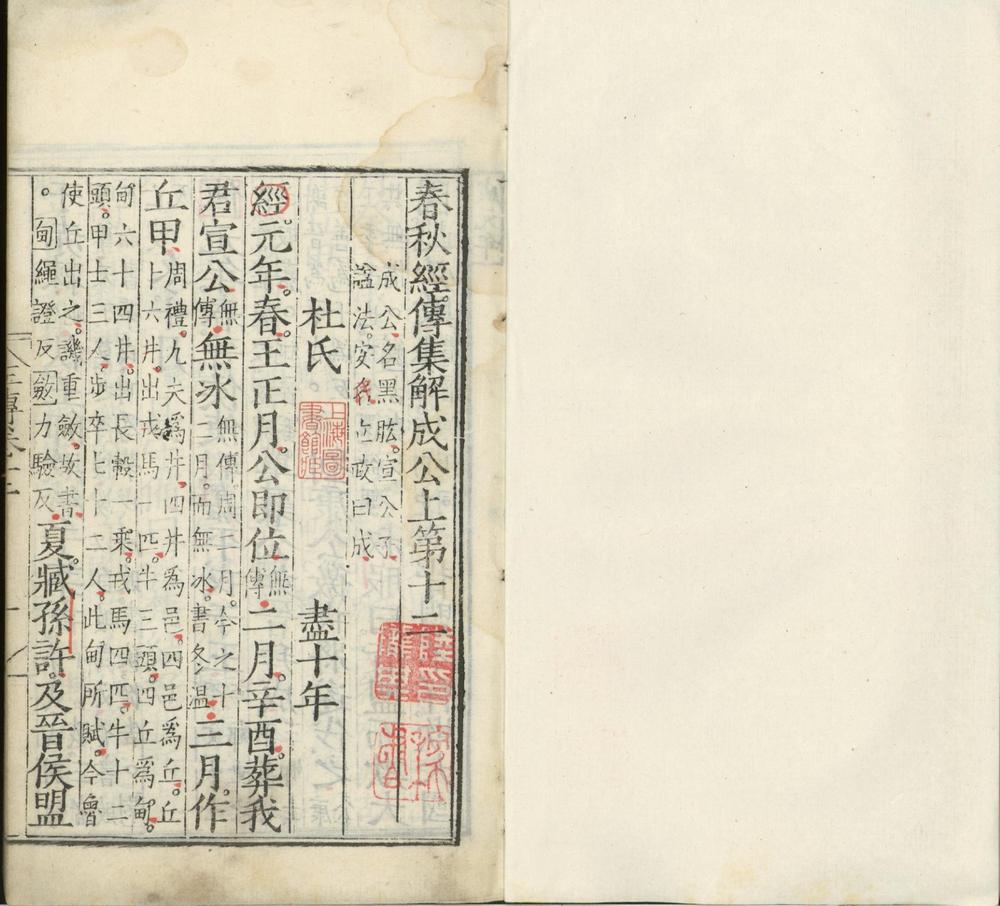 春秋經傳集解成公上第十二
成公名黑肱宣公子
謚法安民立政曰成
杜氏 盡十年
經元年春王正月公即位無傳二月辛酉葬我
君宣公無傳無冰無傳周二月今之十二月而無冰書冬温三月作
丘甲周禮九夫爲井四井爲邑四邑爲丘丘十六井出戎馬一匹牛三頭四丘爲甸
甸六十四井出長轂一乘戎馬四匹牛十二
頭甲士三人步卒七十二人此甸所賦今魯
使丘出之譏重斂故書。甸繩證反斂力驗反夏臧孫許及晉侯盟
上海圖書館藏